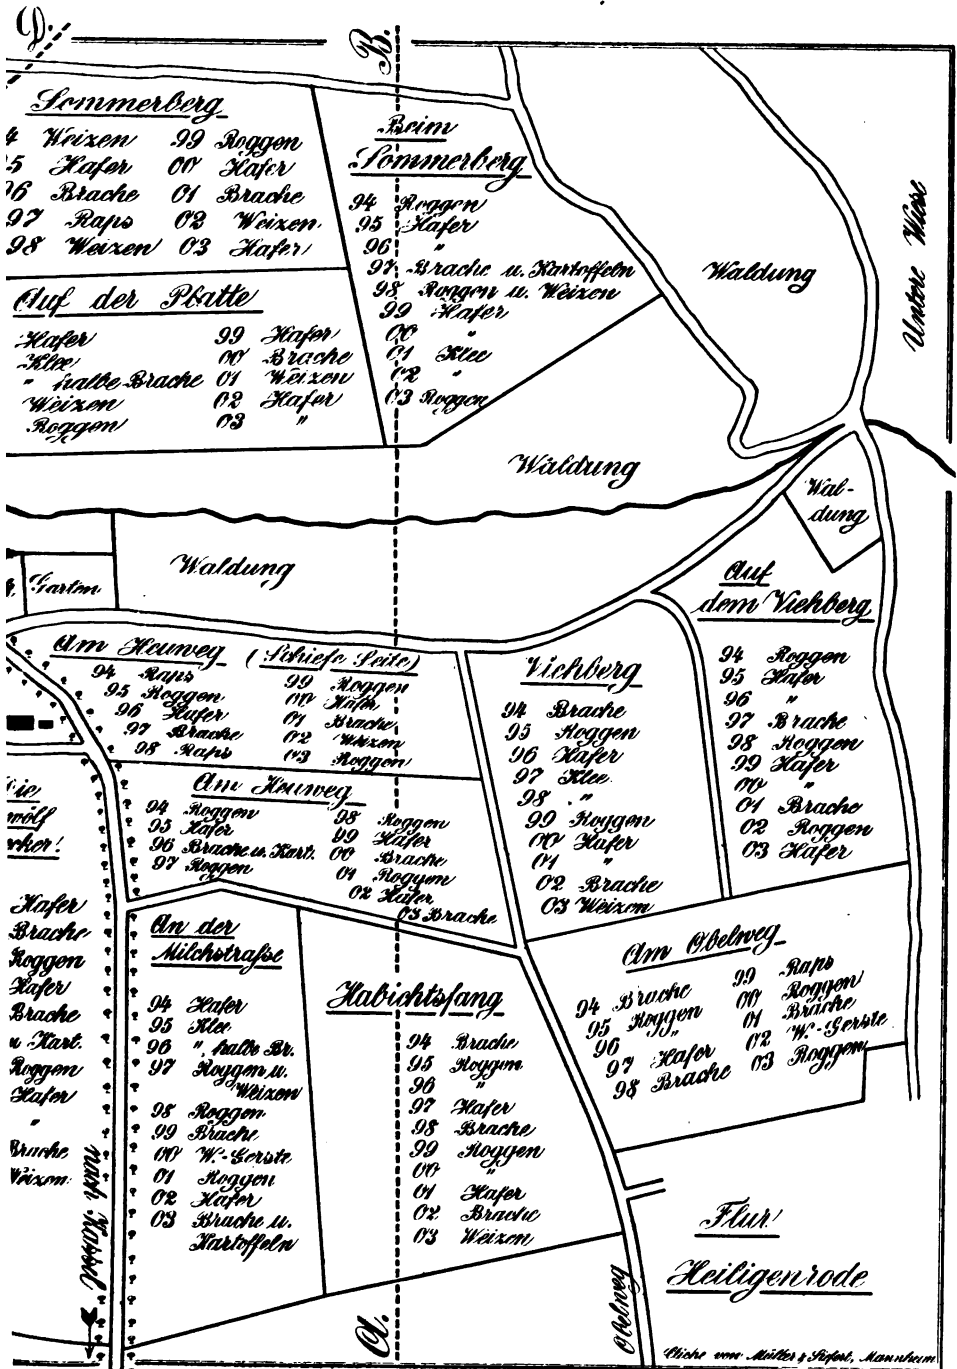 D.
B.
Sommerberg
4 Weizen 99 Roggen
95 Hafer 00 Hafer
96 Brache 01 Brache
97 Raps 02 Weizen
98 Weizen 03 Hafer
Beim
Sommerberg
94 Roggen
95 Hafer
96 "
97 Brache u. Kartoffeln
98 Roggen u. Weizen
99 Hafer
00 "
01 Klee
02 "
03 Roggen
Waldung
Untere Wiese
Auf der Platte
Hafer 99 Hafer
Klee 00 Brache
" halbe Brache 01 Weizen
Weizen 02 Hafer
Roggen 03 "
Waldung
Wal-
dung
Waldung
Garten
Auf
dem Viehberg
94 Roggen
95 Hafer
96 "
97 Brache
98 Roggen
99 Hafer
00 "
01 Brache
02 Roggen
03 Hafer
Am Heuweg (Schiefe Seite)
94 Raps 99 Roggen
95 Roggen 00 Hafer
96 Hafer 01 Brache
97 Brache 02 Weizen
98 Raps 03 Roggen
Viehberg
94 Brache
95 Roggen
96 Hafer
97 Klee
98 "
99 Roggen
00 Hafer
01 "
02 Brache
03 Weizen
Am Heuweg
94 Roggen 98 Roggen
95 Hafer 99 Hafer
96 Brache u. Kart. 00 Brache
97 Roggen 01 Roggen
02 Hafer
03 Brache
ie
wölf
cker!
Hafer
Brache
Roggen
Hafer
Brache
u Kart.
Roggen
Hafer
"
Brache
Weizen
nach Kassel
An der
Milchstraße
94 Hafer
95 Klee
96 ", halbe Br.
97 Roggen u.
Weizen
98 Roggen
99 Brache
00 W.-Gerste
01 Roggen
02 Hafer
03 Brache u.
Kartoffeln
Habichtsfang
94 Brache
95 Roggen
96 "
97 Hafer
98 Brache
99 Roggen
00 "
01 Hafer
02 Brache
03 Weizen
Am Obelweg
94 Brache 99 Raps
95 Roggen 00 Roggen
96 " 01 Brache
97 Hafer 02 W.-Gerste
98 Brache 03 Roggen
Flur
Heiligenrode
Obelweg
A.
Cliche von Müller & Seifert, Mannheim